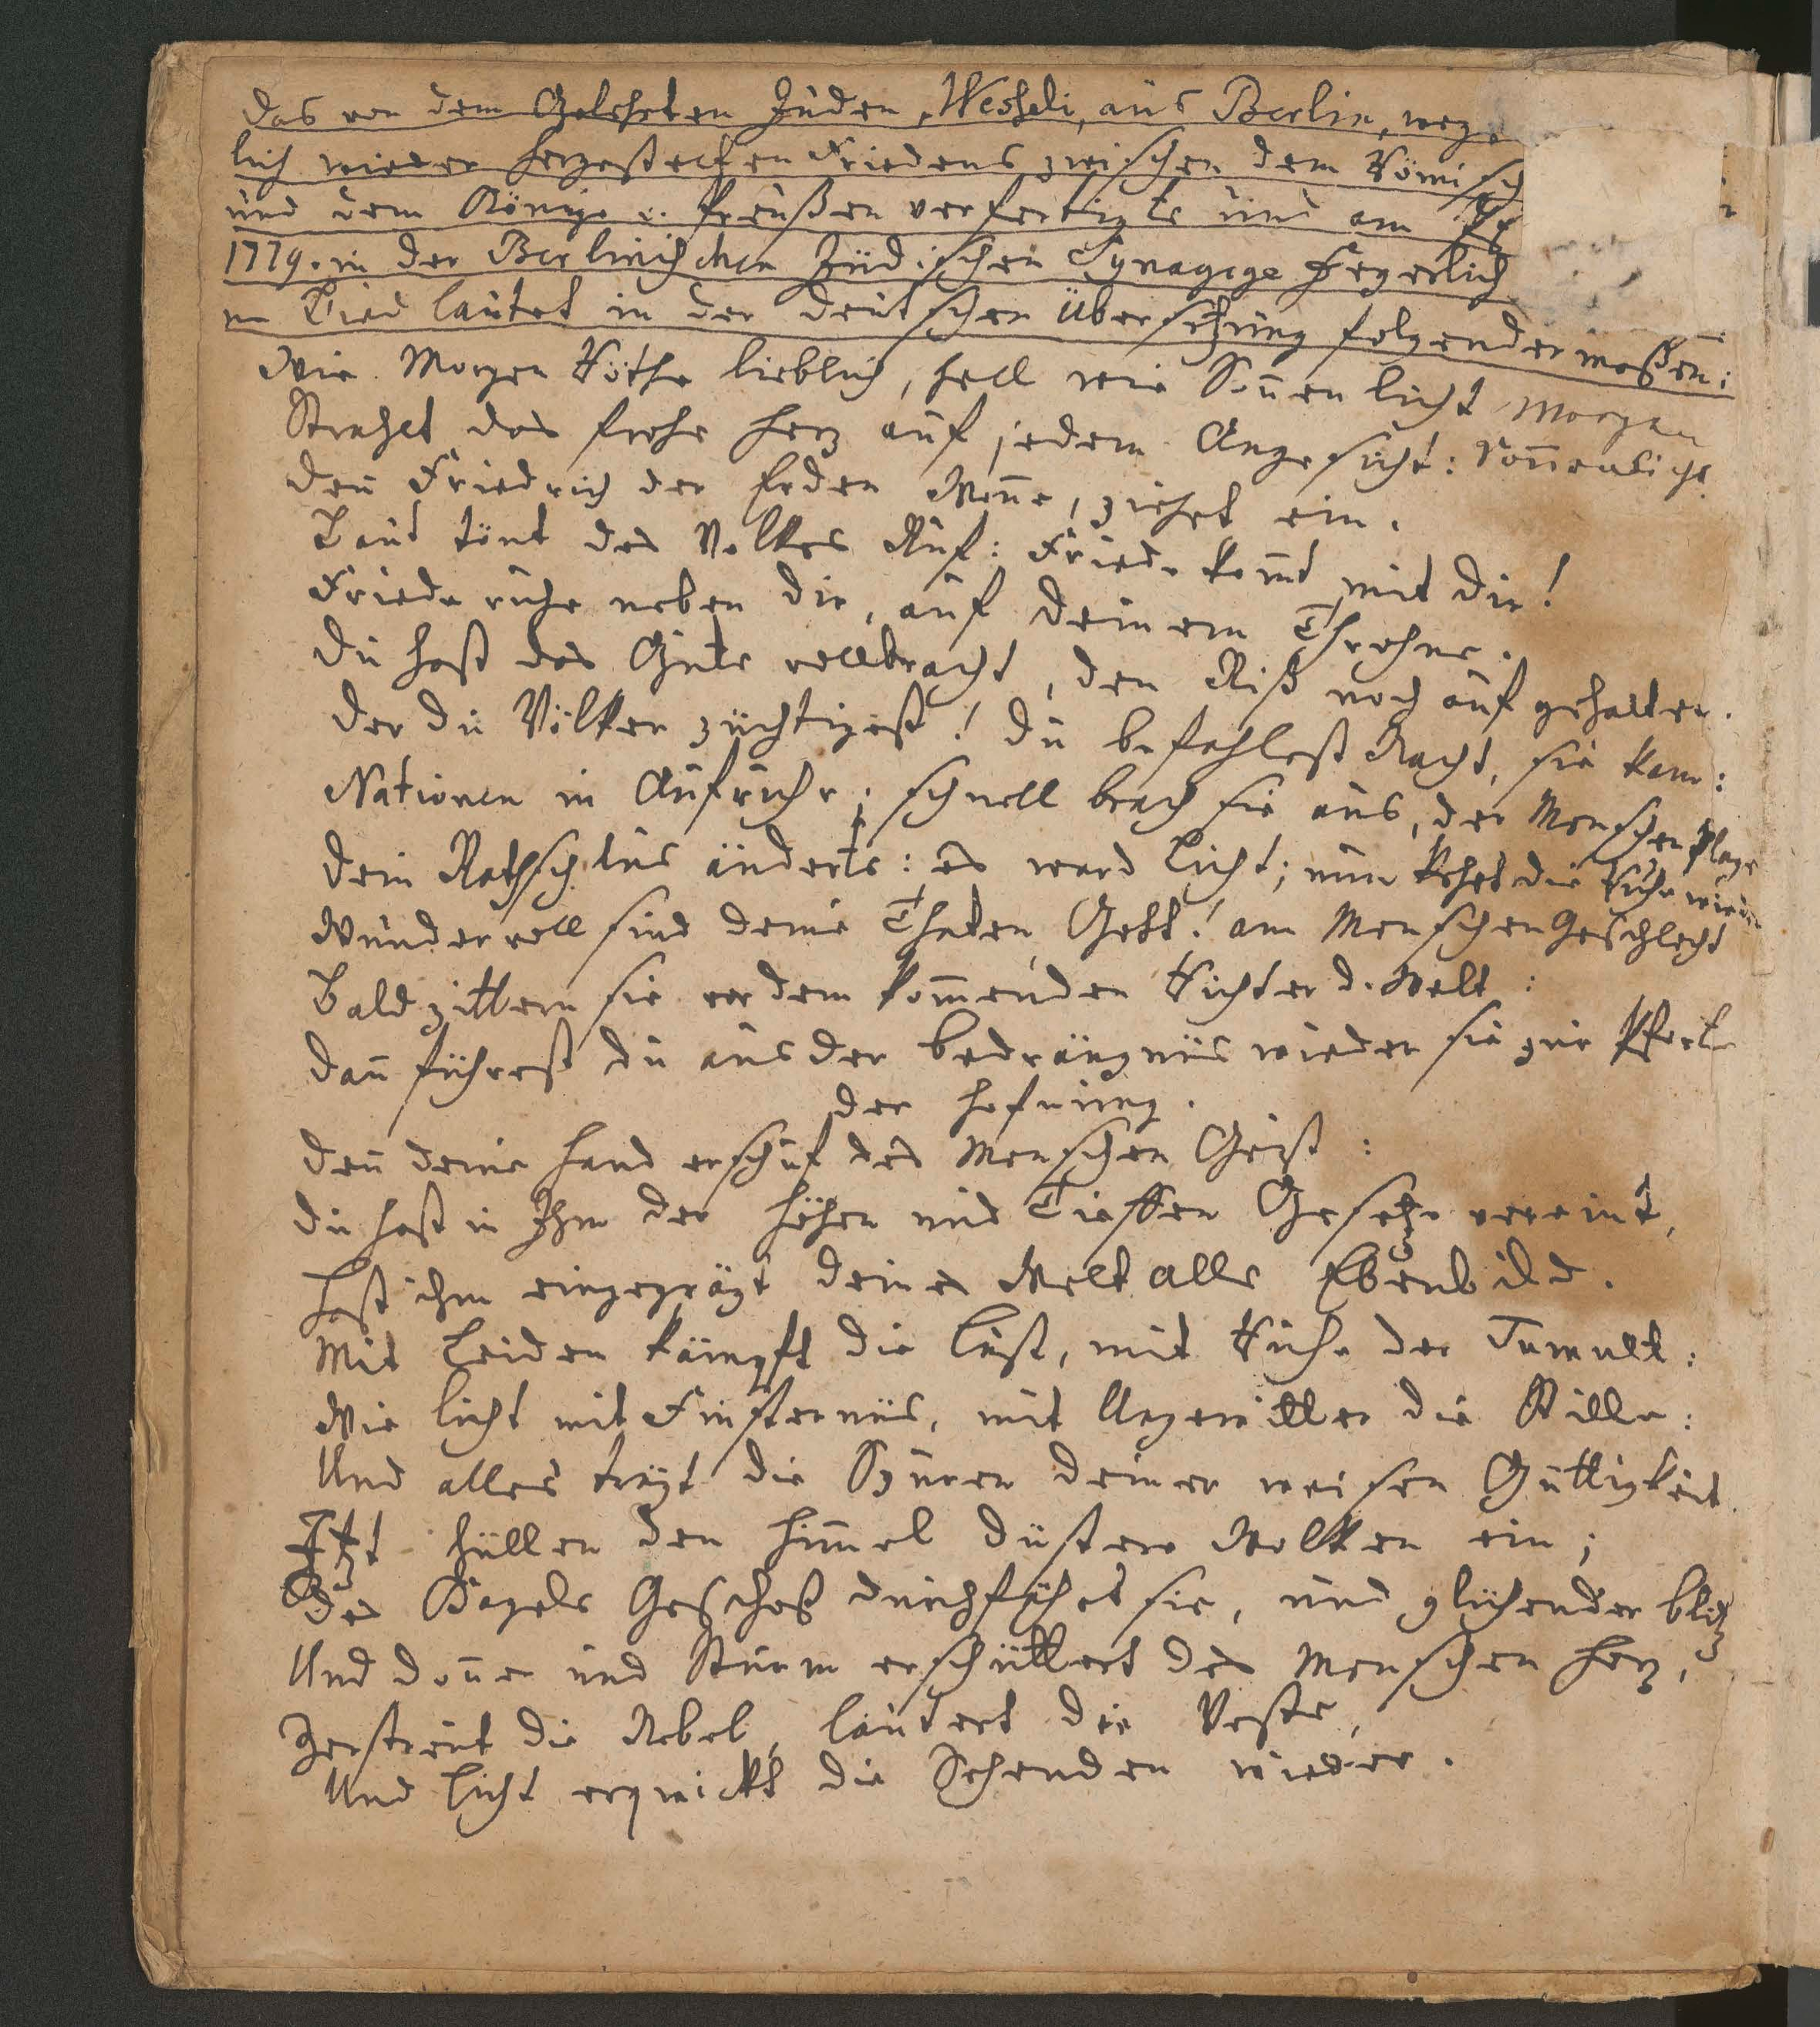 Das von dem Gelehrten Juden, Wesseli, aus Berlin, weg
lich wieder hergestelten Friedens zwischen dem Römisch
und dem Könige v. Preußen verfertigte und am
1779. in der Berlinischen Jüdischen Synagoge feyerlich
Lied lautet in der deutschen Übersetzung folgender maßen:
Wie Morgen Röthe lieblich, hell wie Sonnen licht Morgen
Strahlet das frohe Herz auf jedem Angesicht: Sonnenlicht
Denn Friedrich der Erden Wonne, ziehet ein.
Laut tönt des Volkes Ruf: Friede kommt mit dir!
Friede ruhe neben dir, auf deinem Throhne.
Du hast das Gute vollbracht, den Riß noch auf gehalten.
Der du Völker züchtigest! du befahlest Nacht, sie kam:
Nationen in Aufruhr; schnell brach sie aus, der Menschen Plage
Dein Rathschlus änderts: es ward Licht; nun kehrt die Ruhe wieder
Wundervoll sind deine Thaten, Gott! am Menschen Geschlecht
Bald zittern sie vor dem kommenden Richter d. Welt:
Dann führest du aus der Bedrängnüs wieder sie zur Pforte
der Hofnung.
Denn deine Hand erschuf des Menschen Geist:
Du hast in Ihm der Höhen und Tieffen Gesetze vereint,
Hast ihm eingeprägt deines Welt alls Ebenbild.
Mit Leiden kämpft die Lust, mit Ruhe der Tumult:
Wie Licht mit Finsternüs, mit Ungewitter die Stille:
Und alles trägt die Spuren deiner weisen Güttigkeit.
Itzt hüllen den Himmel düstere Wolken ein;
Des Hagels Geschoß durchfähret sie, und glühender Blitz
Und Donner und Sturm erschüttert des Menschen Herz,
Zerstreut die Nebel, läutert die Veste,
Und Licht erquickt die Sehenden wieder.